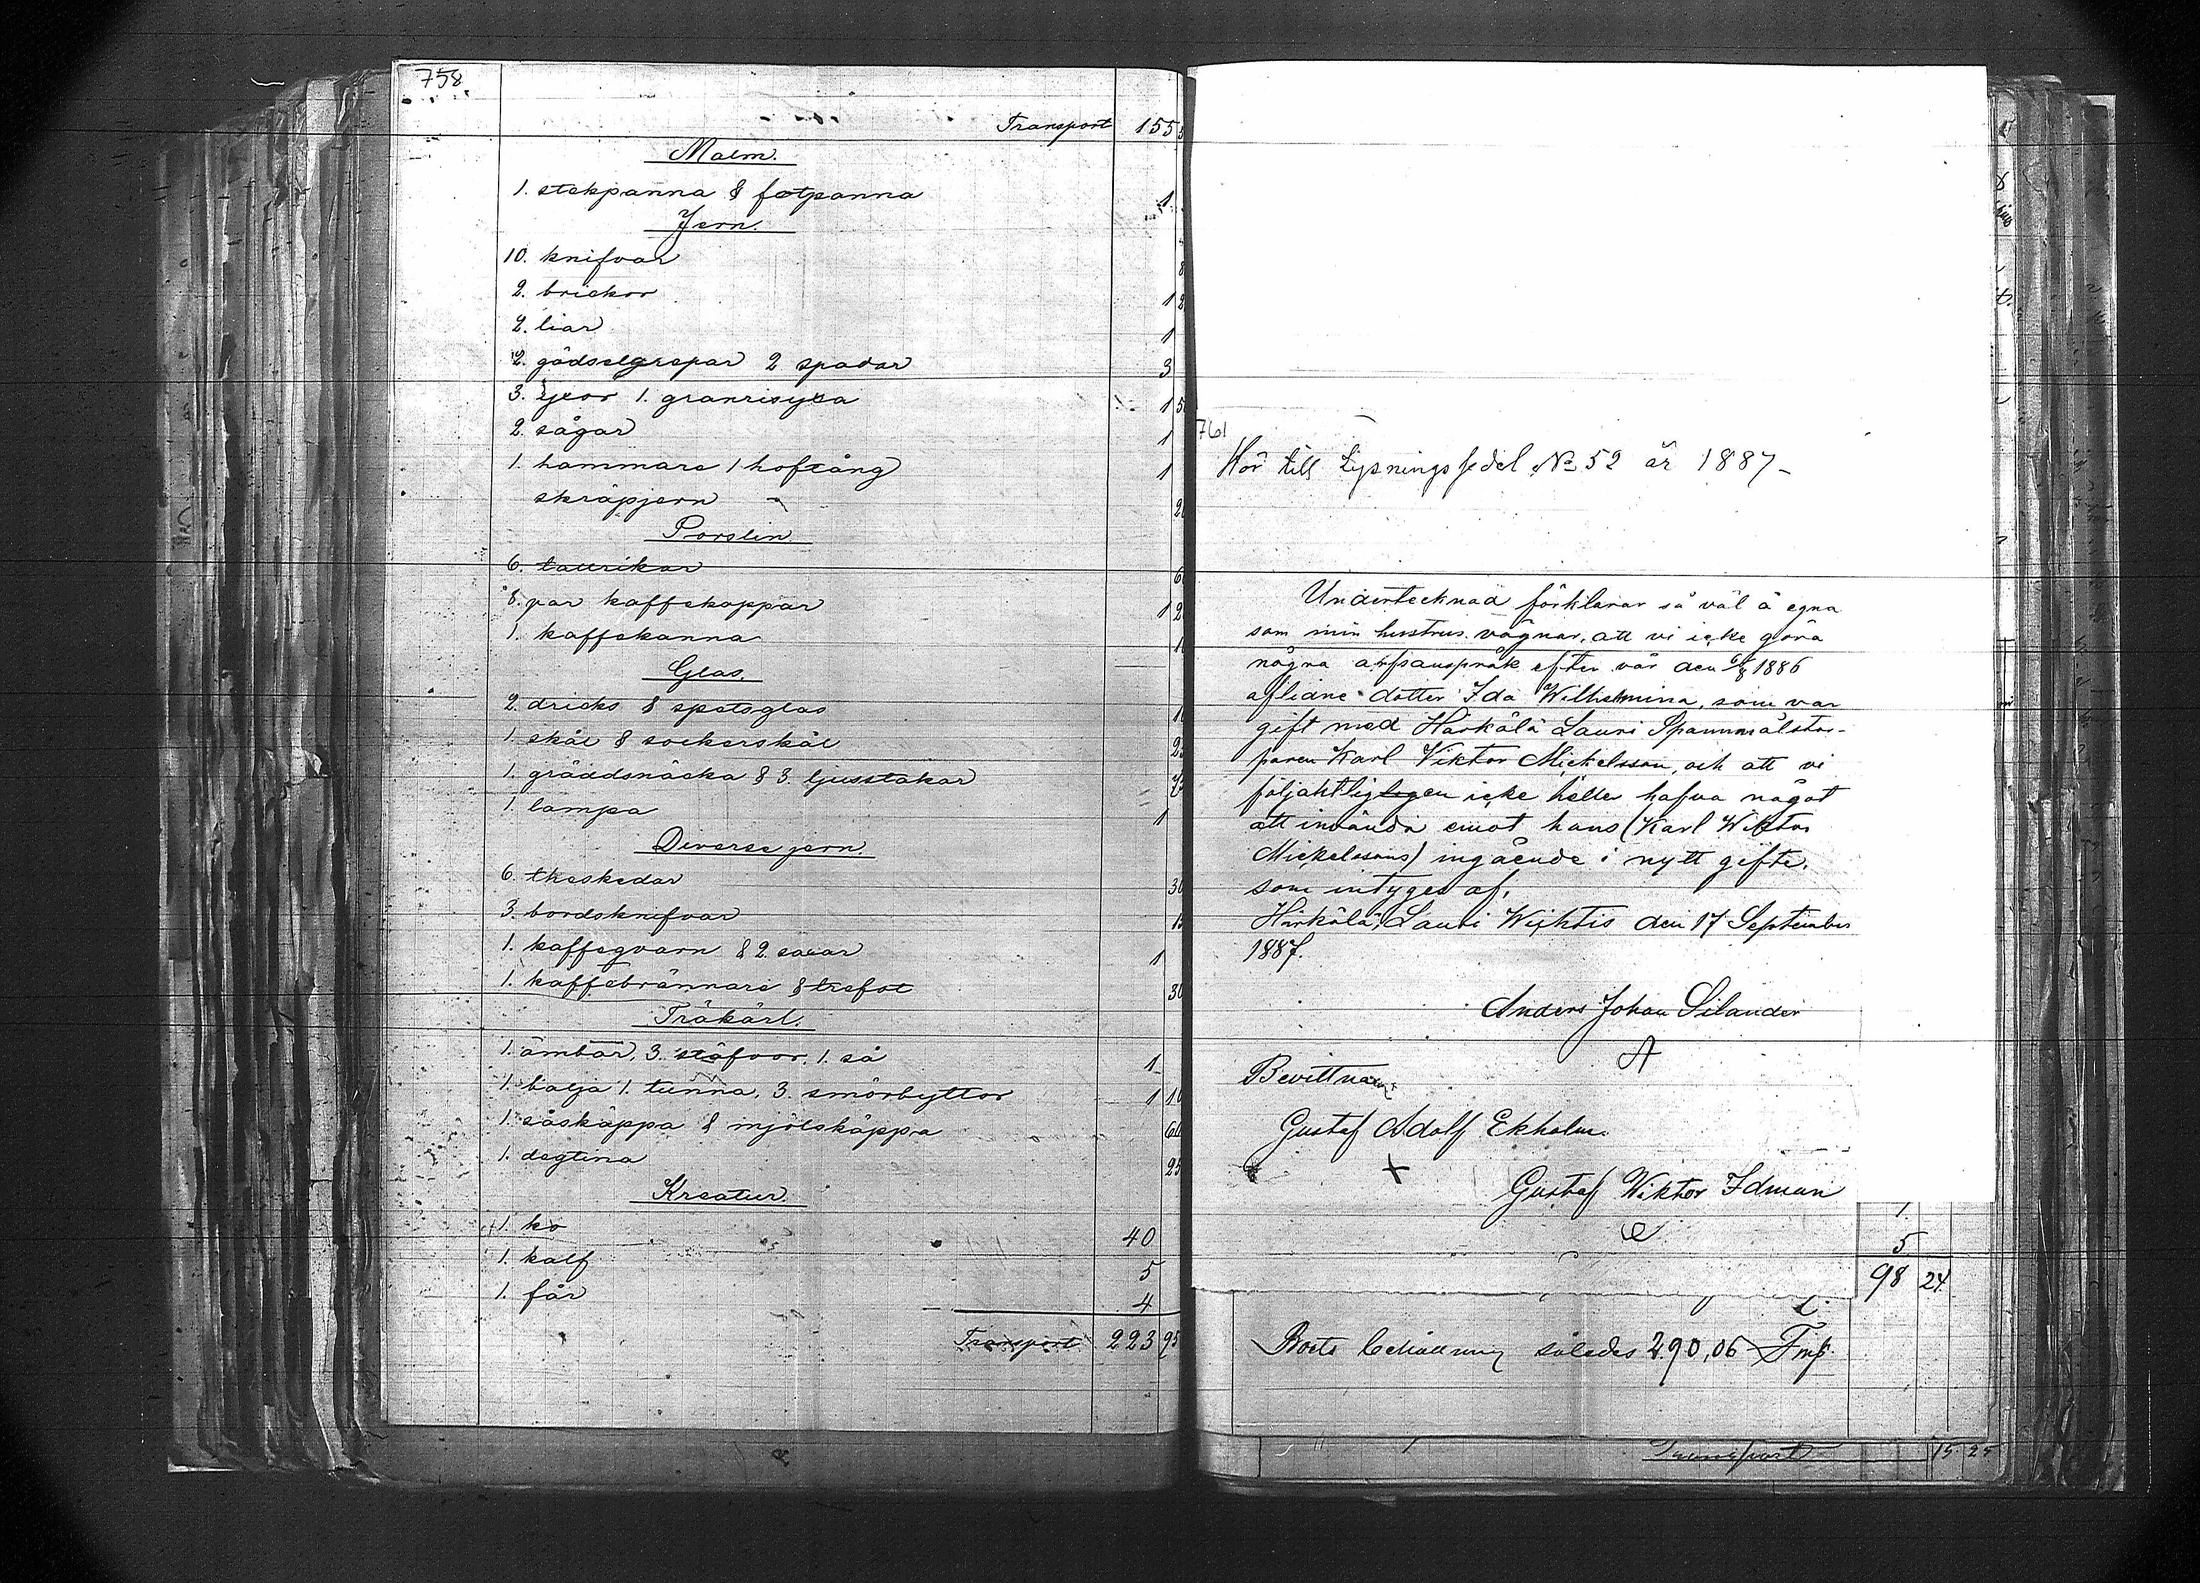 758
Transport 155
Malm.
1. stekpanna & fotpanna 1
Jern.
10. knifvar 8
2. brickor 1 2
2. liar 1
2. gödselgrepar 2 spadar 3
3. yxor 1. granrisyxa 1 5
2. sågar 1
1. hammare 1 hoftång 1
skräpjern 2
Porslin
6. tallrikar 6
8. par kaffekoppar 1 2
1. kaffekanna 1
Glas.
2. dricks & spetsglas 1
1. skål & sockerskål 2
1. gräddsnäcka & 3. ljusstakar
1. lampa 1
Diverse jern.
6. theskedar 30
3. bordsknifvar 1
1. kaffeqvarn & 2. saxar 1
1. kaffebrännare & trefot 30
Träkärl.
1. ämbar, 3. stäfvor, 1. så 1
1. balja 1. tunna, 3. smörbyttor 1 10
1. såskäppa & mjölskäppa 60
1. degtina 25
Kreatur
1. ko 40
1. kalf 5
1. får 4
Transport 223 95
761
Hör till Lysningssedel No 52 år 1887 –
Undertecknad förklarar så väl å egna
som min hustrus vägnar, att vi icke göra
några arfsanspråk efter vår den 6/8 1886
aflidne dotter Ida Wilhelmina, som var
gift med Härkälä Lauri Spannmålstor-
paren Karl Viktor Mickelsson, och att vi
följaktligen icke heller hafva något
att invända emot hans (Karl Wiktor
Mickelssons) ingående i nytt gifte,
som intygas af,
Härkälä, Lauri Wichtis den 17 September
1887.
Anders Johan Silander
A
Bevittna
Gustaf Adolf Ekholm
+
Gustaf Wiktor Idman
1
5
98 24
Boets behållning således 290,06 Fmk
Transport 15 25